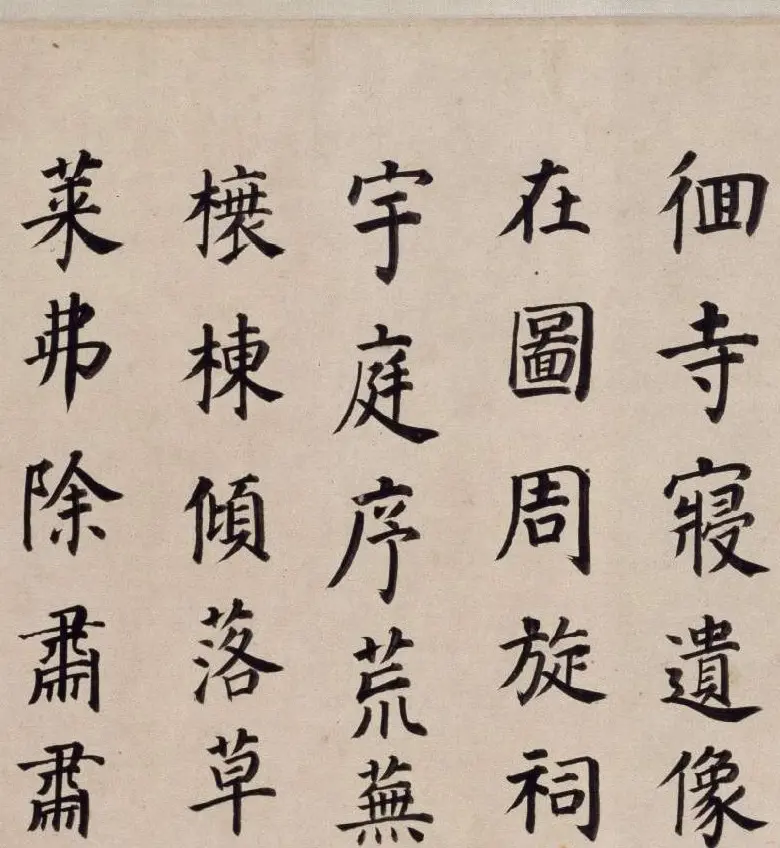 徊寺寢遺像
在圖周旋祠
宇庭序荒蕪
榱棟傾落草
莱弗除肅肅